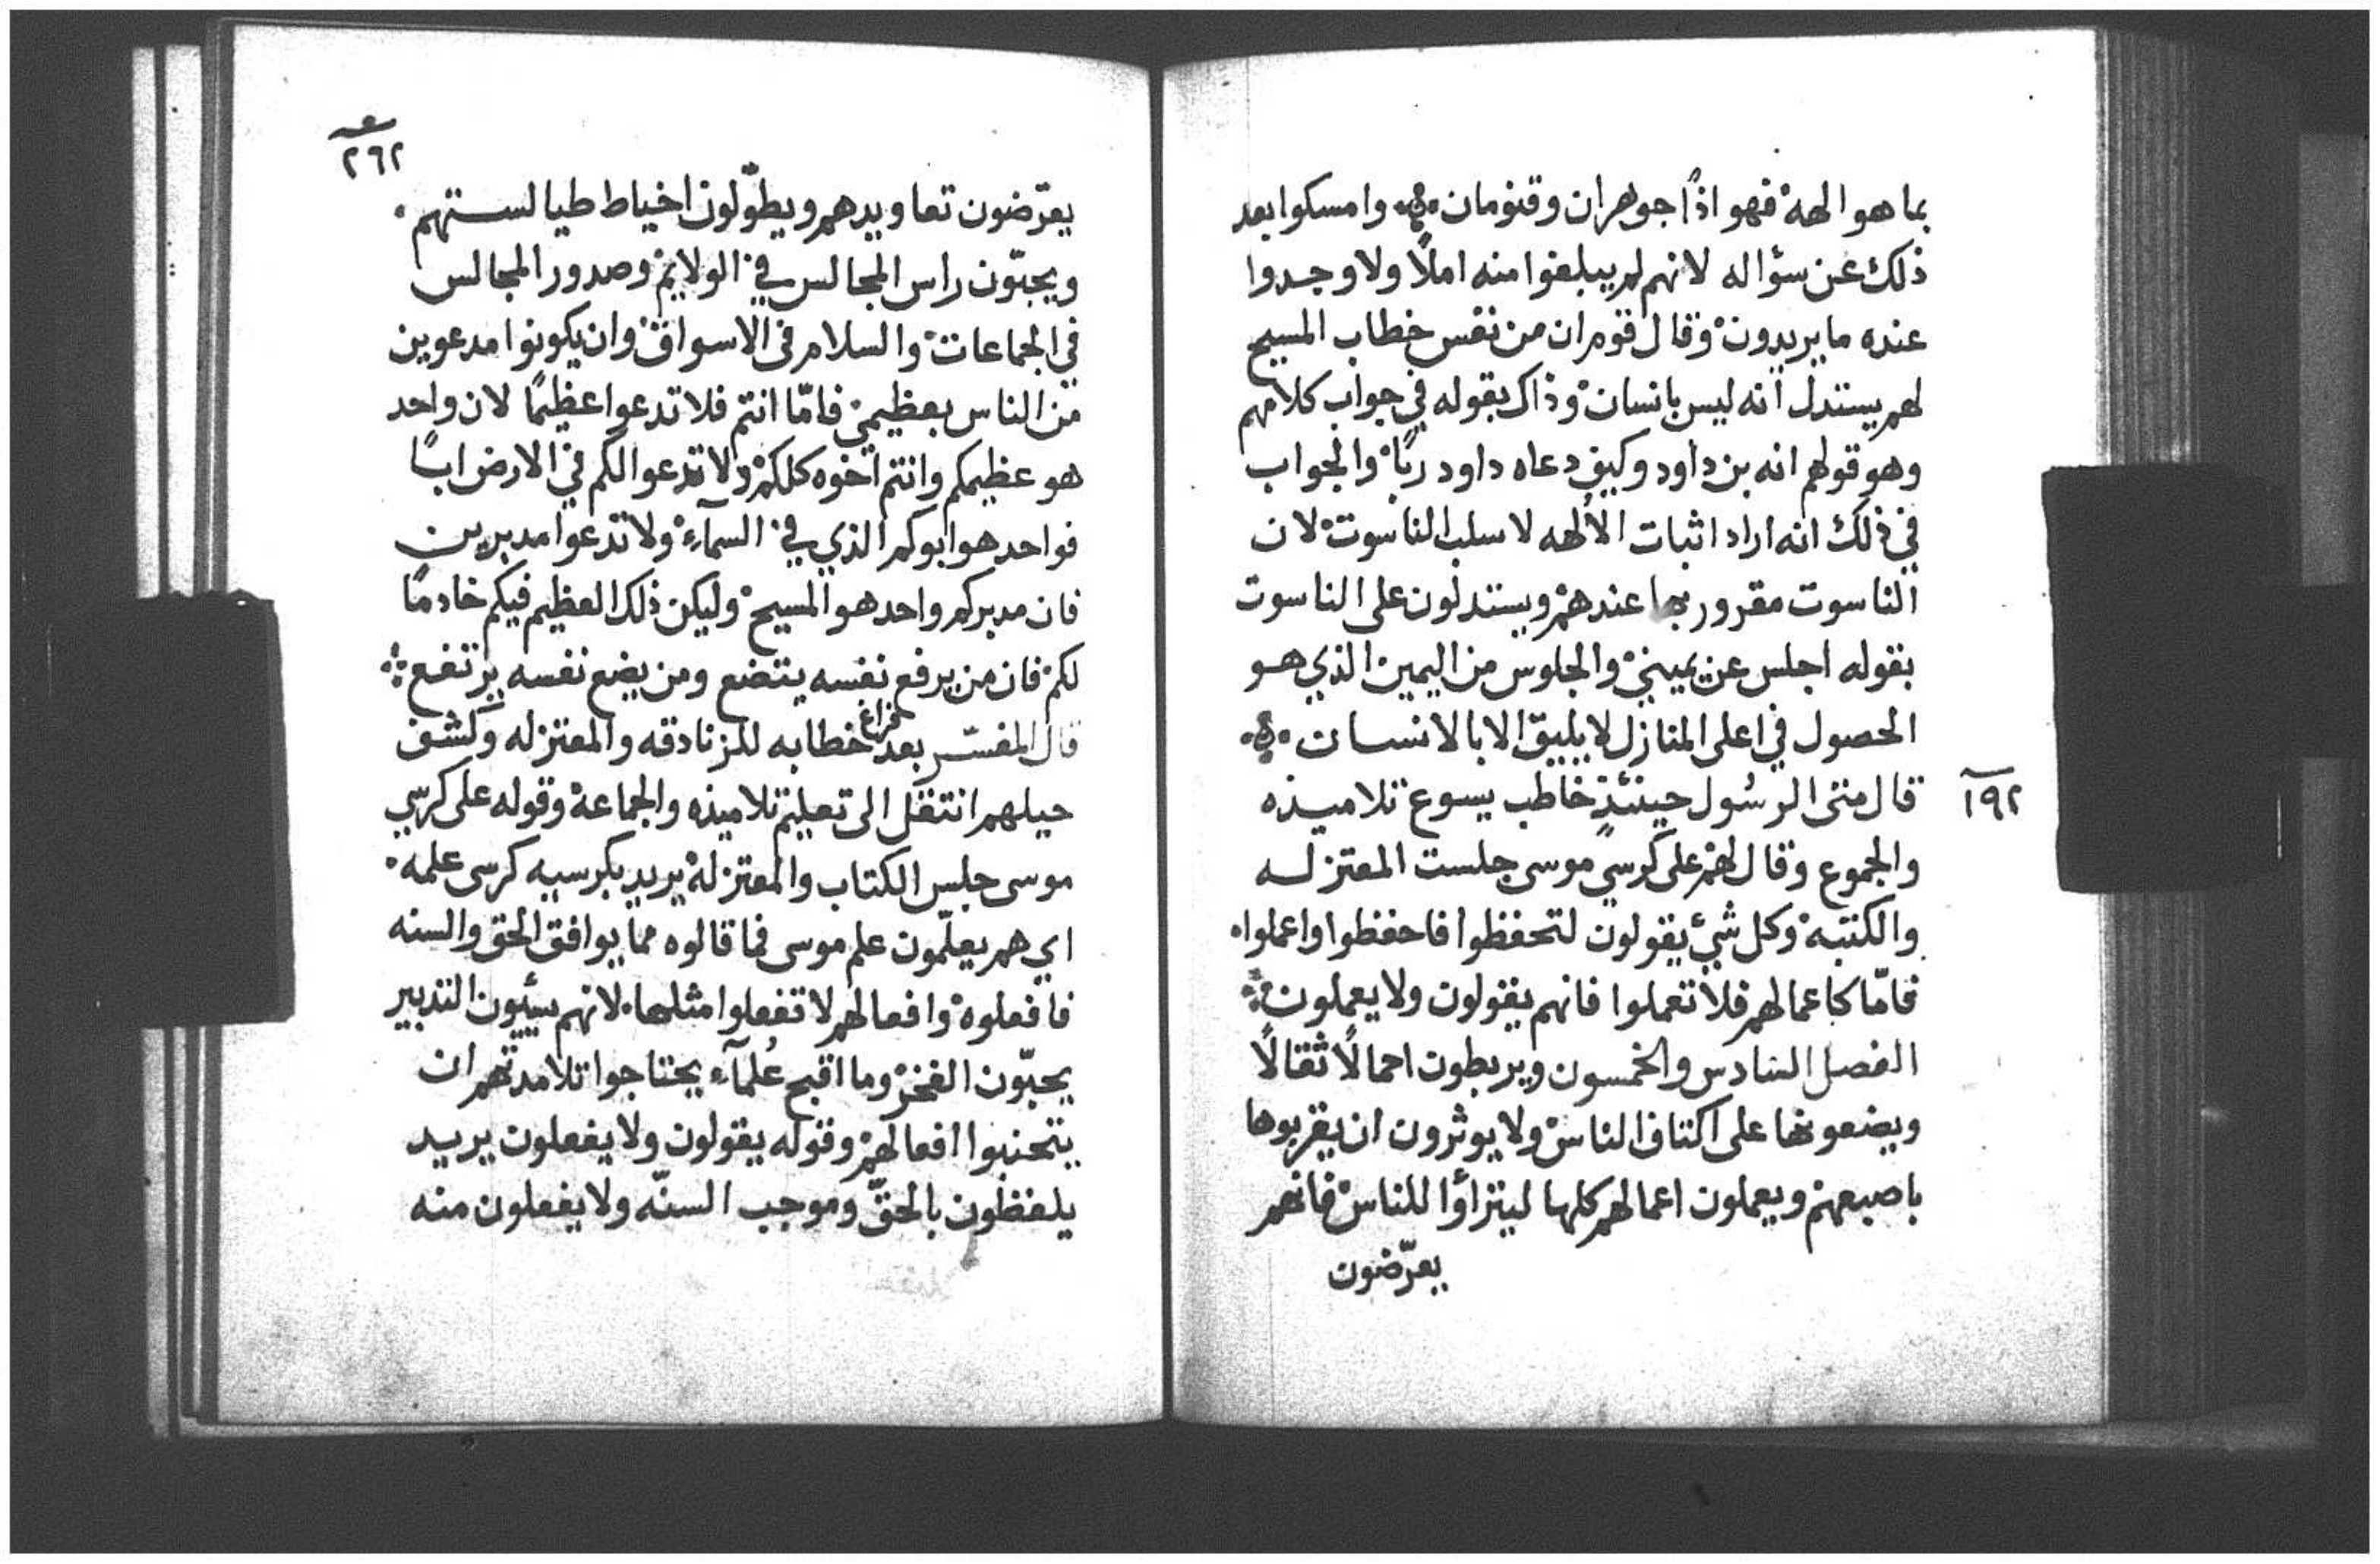 بما هو الهه فهو اذًا جوهران وقنومان وامسكوا بعد
ذلك عن سؤاله لانهم لم يبلغوا منه املًا ولا وجدوا
عنده ما يريدون وقال قوم ان من نفس خطاب المسيح
لهم يستدل انه ليس بانسان وذاك بقوله في جواب كلامهم
وهو قولهم انه بن داود وكيف دعاه داود ربًا والجواب
في ذلك انه اراد اثبات الالهه لا سلب الناسوت لان
الناسوت مقرور بها عندهم ويستدلون على الناسوت
بقوله اجلس عن يميني والجلوس من اليمين الذي هو
الحصول في اعلى المنازل لا يليق الا بالانسان
١٩٢
قال متى الرسُول حينئذٍ خاطب يسوع تلاميذه
والجموع وقال لهم على كرسي موسى جلست المعتزله
والكتبه وكل شيء يقولون لتحفظوا فاحفظوا واعملوا
فامّا كاعمالهم فلا تعملوا فانهم يقولون ولا يعملون
الفصل السادس والخمسون ويربطون احمالًا ثقالًا
ويضعونها على اكتاف الناس ولا يوثرون ان يقربوها
باصبعهم ويعملون اعمالهم كلها ليتراؤا للناس فانهم
يعرّضون
٢٦٢
يعرّضون تعاويدهم ويطوّلون اخياط طيالستهم
ويحبّون راس المجالس في الولايم وصدور المجالس
في الجماعات والسلام في الاسواق وان يكونوا مدعوين
من الناس بعظيمي فامّا انتم فلا تدعوا عظيمًا لان واحد
هو عظيمكم وانتم اخوه كلكم ولا تدعوا لكم في الارض ابًا
فواحد هو ابوكم الذي في السمآء ولا تدعوا مدبرين
فان مدبركم واحد هو المسيح وليكن ذلك العظيم فيكم خادمًا
لكم فان من يرفع نفسه يتضع ومن يضع نفسه يرتفع
قال المفسّر بعد فراغ خطابه للزنادقه والمعتزله وكشف
حيلهم انتقل الى تعليم تلاميذه والجماعة وقوله على كرسي
موسى جلس الكتاب والمعتزله يريد بكرسيه كرسى علمه
اي هم يعلّمون علم موسى فما قالوه مما يوافق الحق والسنه
فافعلوه وافعالهم لا تفعلوا مثلها لانهم سيّيون التدبير
يحبّون الفخر وما اقبح عُلمآء يحتاجوا تلامدتهم ان
يتجنبوا افعالهم وقوله يقولون ولا يفعلون يريد
يلفظون بالحقّ وموجب السنّه ولا يفعلون منه